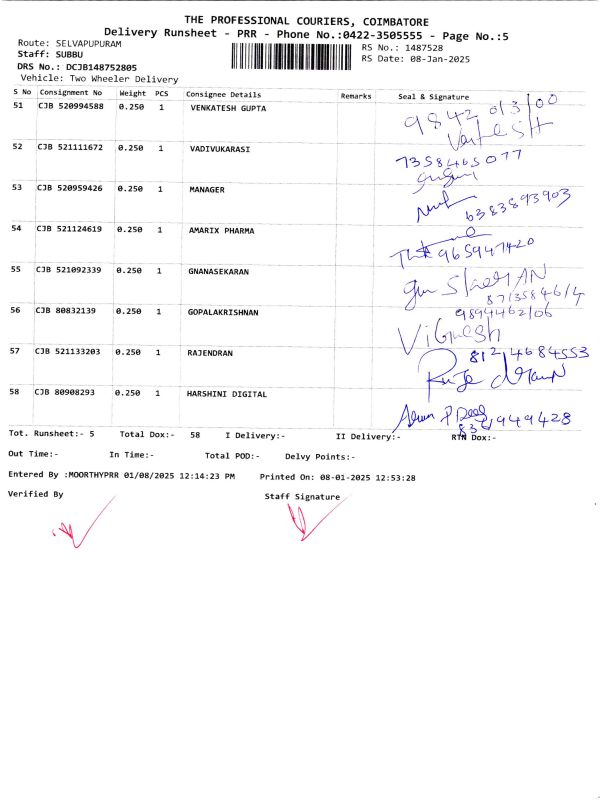 THE PROFESSIONAL COURIERS, COIMBATORE
Delivery Runsheet - PRR - Phone No.:0422-3505555 - Page No.:5
Route: SELVAPUPURAM RS No.: 1487528
Staff: SUBBU RS Date: 08-Jan-2025
DRS No.: DCJB148752805
Vehicle: Two Wheeler Delivery
S No Consignment No Weight PCS Consignee Details Remarks Seal & Signature
51 CJB 520994588 0.250 1 VENKATESH GUPTA 9842 0/3/00
52 CJB 521111672 0.250 1 VADIVUKARASI 7358465077
53 CJB 520959426 0.250 1 MANAGER 6383893903
54 CJB 521124619 0.250 1 AMARIX PHARMA 965947420
55 CJB 521092339 0.250 1 GNANASEKARAN
56 CJB 80832139 0.250 1 GOPALAKRISHNAN 9894462106
ViGnesh
57 CJB 521133203 0.250 1 RAJENDRAN 8124684553
58 CJB 80908293 0.250 1 HARSHINI DIGITAL
Tot. Runsheet:- 5 Total Dox:- 58 I Delivery:- II Delivery:- RTN Dox:-
Out Time:- In Time:- Total POD:- Delvy Points:-
Entered By :MOORTHYPRR 01/08/2025 12:14:23 PM Printed On: 08-01-2025 12:53:28
Verified By Staff Signature